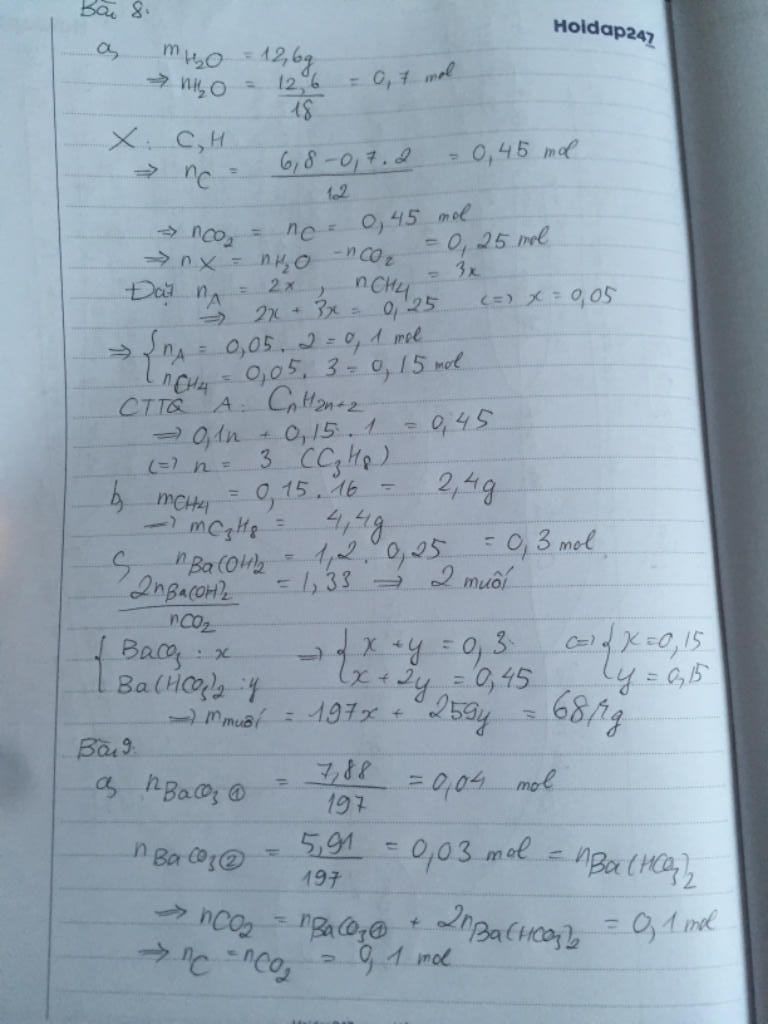 Bài 8.
Hoidap247
a, mH₂O = 12,6g
⇒ nH₂O = 12,6/18 = 0,7 mol
X: C, H
⇒ nC = (6,8 - 0,7 . 2)/12 = 0,45 mol
⇒ nCO₂ = nC = 0,45 mol
⇒ nX = nH₂O - nCO₂ = 0,25 mol
Đặt nA = 2x, nCH4 = 3x
⇒ 2x + 3x = 0,25 (=) x = 0,05
⇒ { nA = 0,05 . 2 = 0,1 mol
nCH4 = 0,05 . 3 = 0,15 mol
CTTQ A: CnH2n+2
⇒ 0,1n + 0,15 . 1 = 0,45
(=) n = 3 (C₃H₈)
b, mCH4 = 0,15 . 16 = 2,4g
→ mC₃H₈ = 4,4g
c, nBa(OH)₂ = 1,2 . 0,25 = 0,3 mol
2nBa(OH)₂/nCO₂ = 1,33 ⇒ 2 muối
{ BaCO₃ : x ⇒ { x + y = 0,3 (=) { x = 0,15
Ba(HCO₃)₂ : y x + 2y = 0,45 y = 0,15
⇒ m muối = 197x + 259y = 68,4g
Bài 9.
a, nBaCO₃ ① = 7,88/197 = 0,04 mol
nBaCO₃ ② = 5,91/197 = 0,03 mol = nBa(HCO₃)₂
⇒ nCO₂ = nBaCO₃ ① + 2nBa(HCO₃)₂ = 0,1 mol
⇒ nC = nCO₂ = 0,1 mol